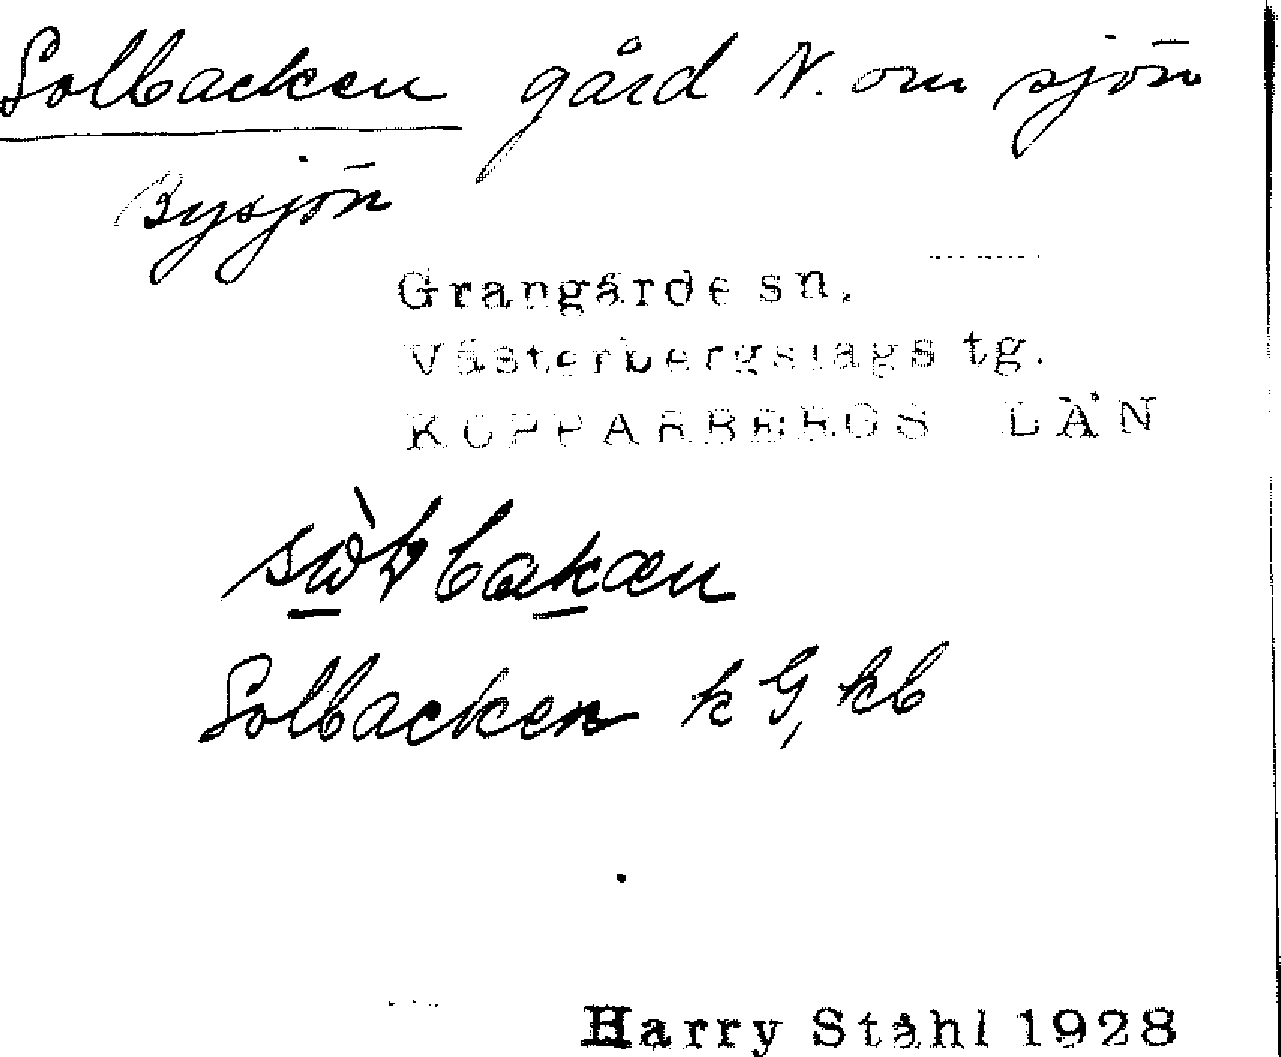 Solbacken gård N. om sjön
Bysjön
Grangärde sn.
Västerbergslags tg.
KOPPARBERGS LÄN
Solbacken k G, kb
Harry Ståhl 1928